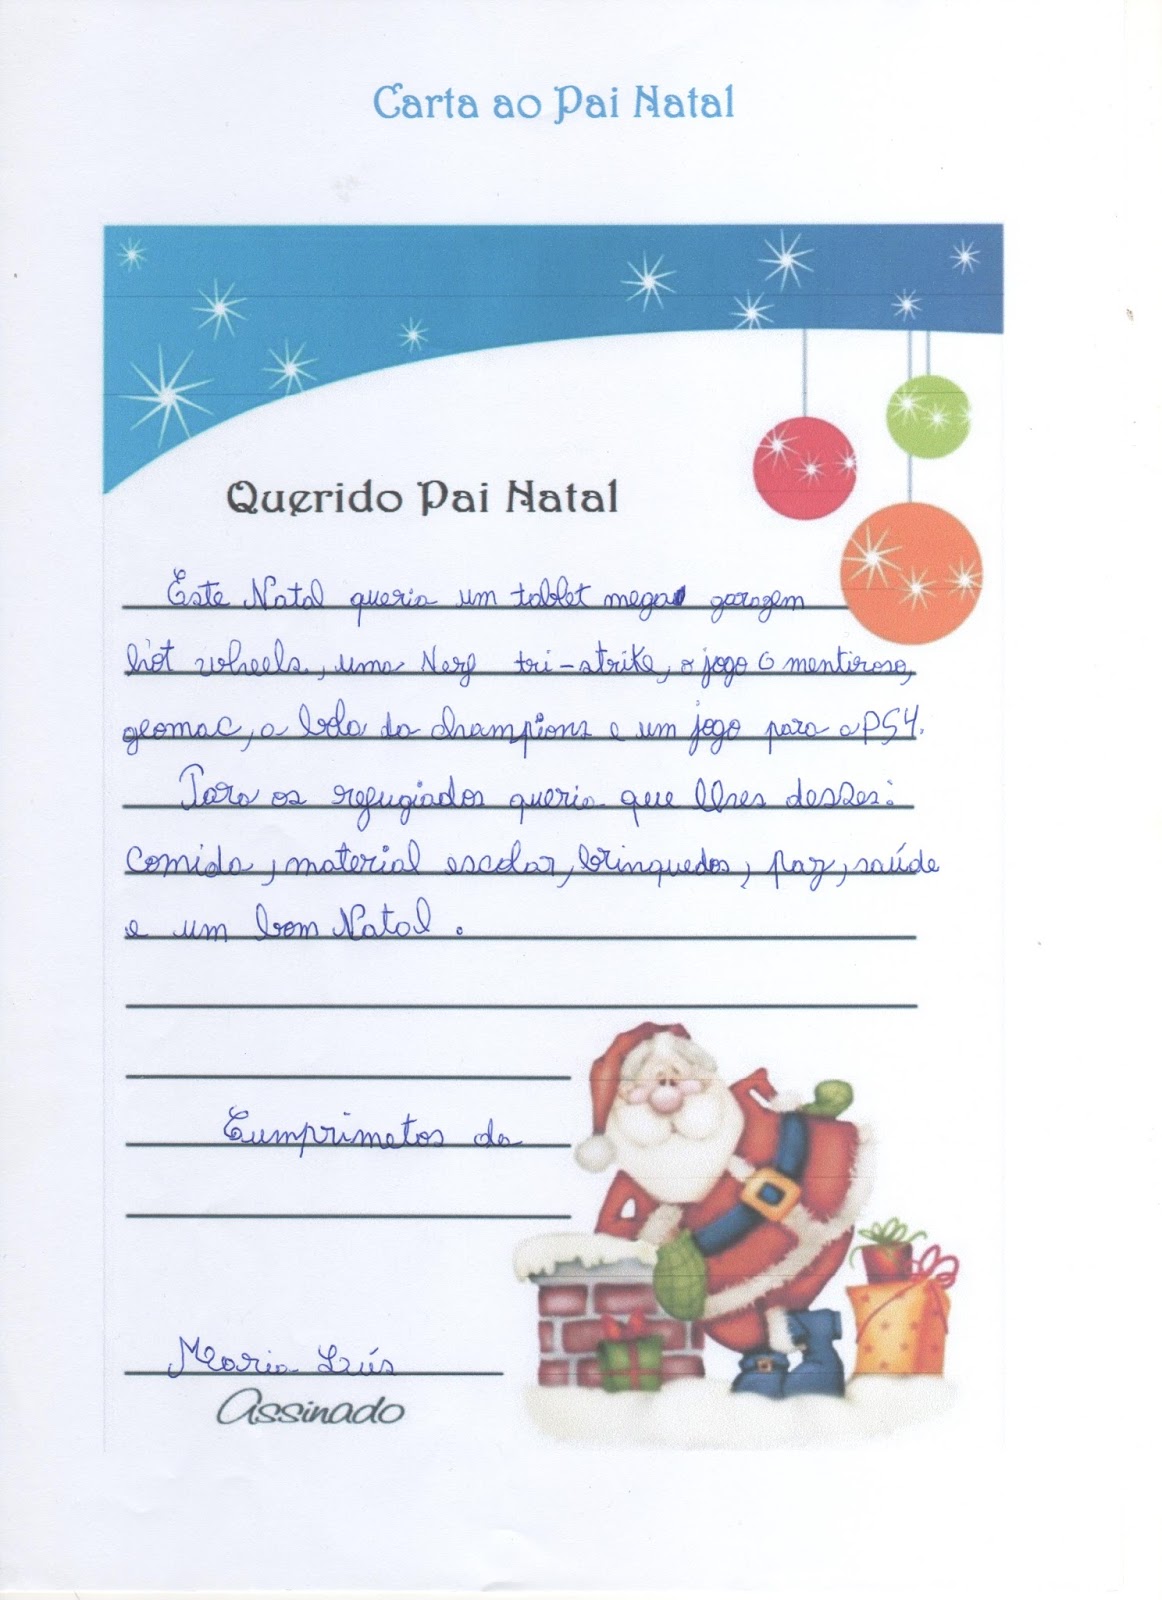 Carta ao Pai Natal
Querido Pai Natal
Este Natal queria um tablet mega garagem
hot wheels, uma Nerf tri-strike, o jogo O mentiroso,
geomac, a bola da champions e um jogo para a PS4.
Para os refugiados queria que lhes desses:
comida, material escolar, brinquedos, paz, saúde
e um bom Natal.
Cumprimetos da
Maria Luís
Assinado